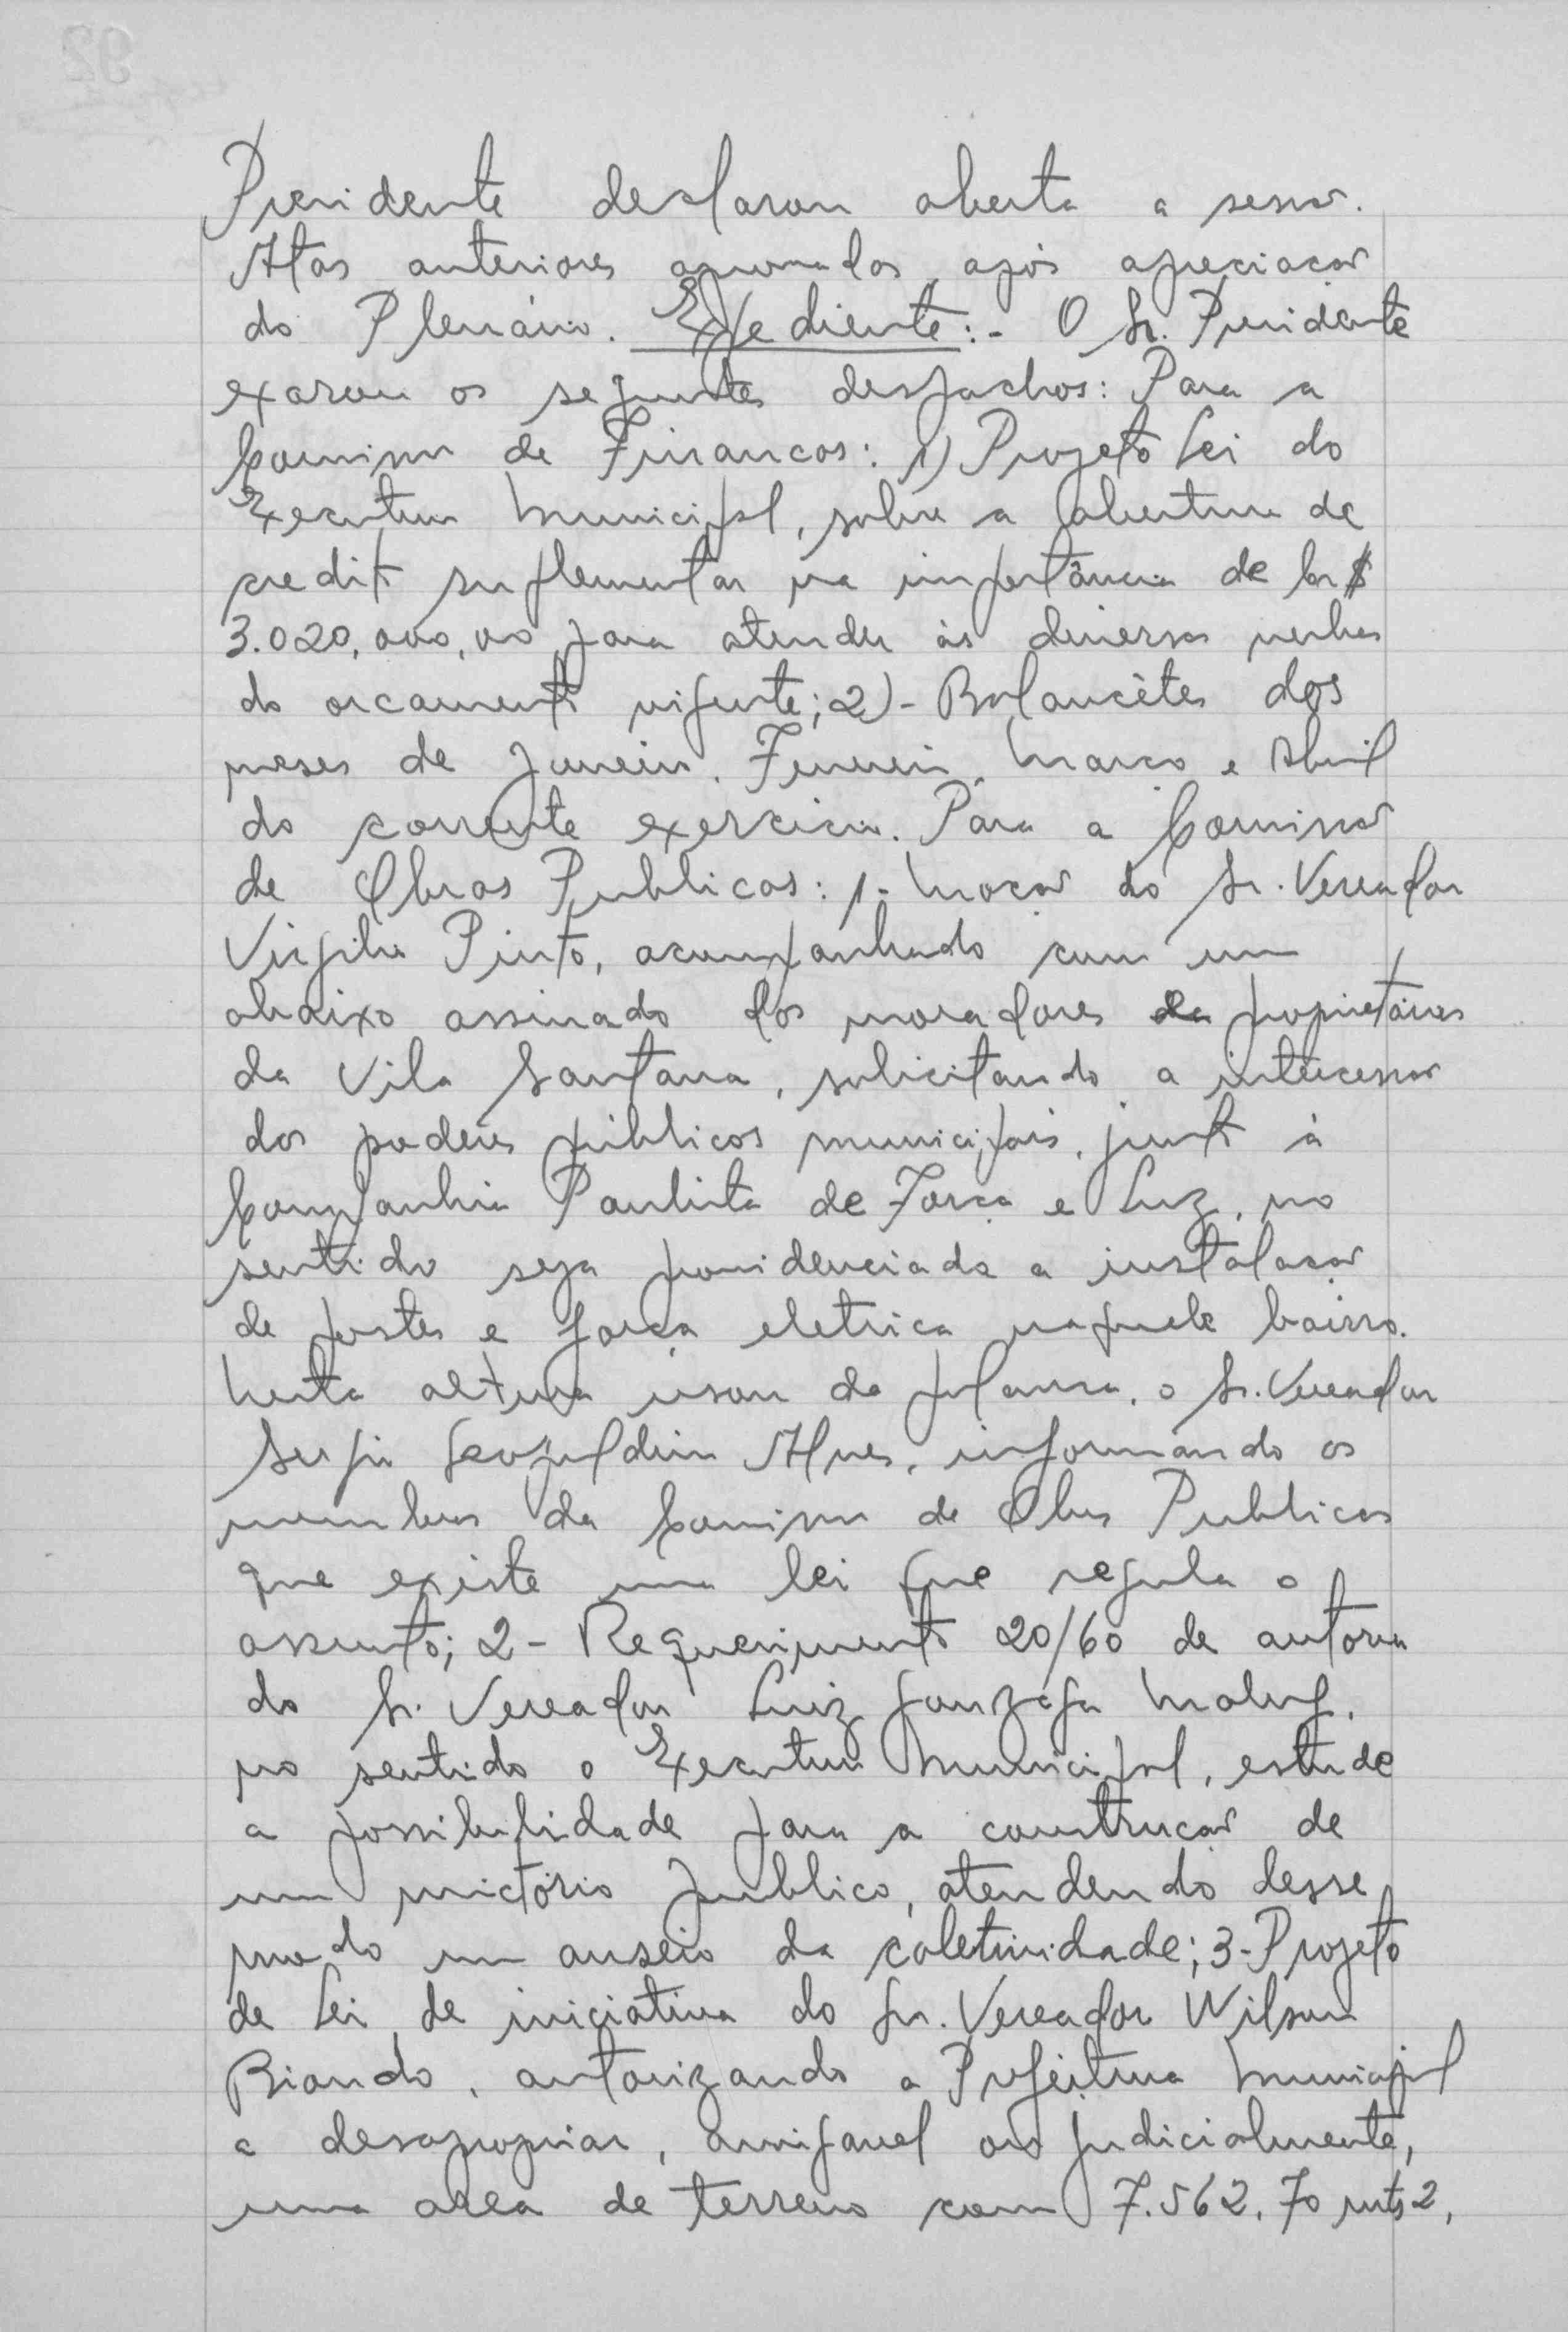 Presidente declarou aberta a sessão.
Atas anteriores aprovadas, após apreciação
do Plenário. Expediente:- O Sr. Presidente
exarou os seguintes despachos: Para a
Comissão de Finanças: 1) Projeto Lei do
Executivo Municipal, sobre a abertura de
credito suplementar na importância de Cr$
3.020,000,00 para atender às diversas verbas
do orçamento vigente; 2)- Balancêtes dos
meses de Janeiro, Fevereiro, Março e Abril
do corrente exercicio. Para a Comissão
de Obras Publicas: 1- Moção do Sr. Vereador
Virgilio Pinto, acompanhado com um
abaixo assinado dos moradores da proprietários
da Vila Santana, solicitando a intercessão
dos poderes públicos municipais, junto à
Companhia Paulista de Força e Luz, no
sentido seja providenciada a instalação
de postes e força eletrica naquele bairro.
Nesta altura usou da palavra, o Sr. Vereador
Sergio Leopoldino Alves, informando os
membros da Comissão de Obras Publicas
que existe uma lei que regula o
assunto; 2- Requerimento 20/60 de autoria
do Sr. Vereador Luiz Gonzaga Maluf,
no sentido o Executivo Municipal, estude
a possibilidade para a construção de
um mictório publico, atendendo desse
modo um anseio da coletividade; 3-Projeto
de Lei de iniciativa do Sr. Vereador Wilson
Biondo, autorizando a Prefeitura Municipal
a desapropriar, amigavel ou judicialmente,
uma area de terreno com 7.562,70 mts2,